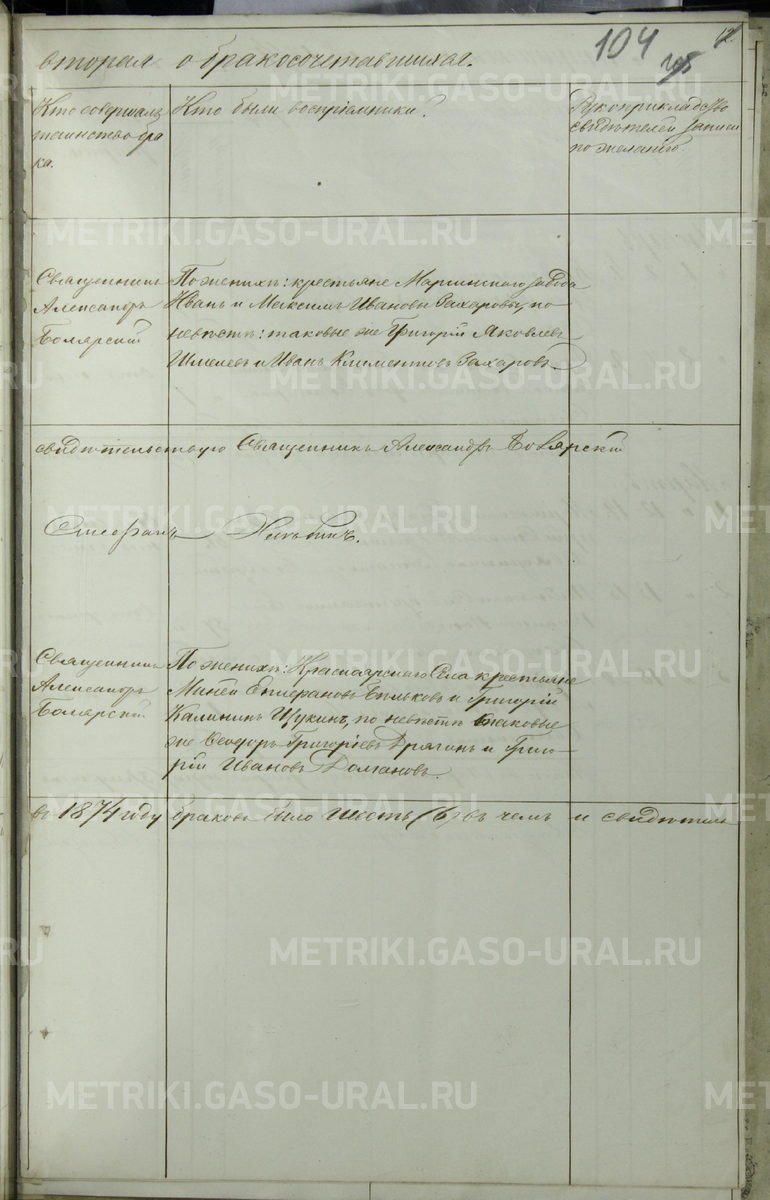 104
вторая о бракосочетавшихся.
Кто совершалъ
таинство бра
ка.
Кто были воспріемники?
Рукоприкладство
свидѣтелей записи
по желанію.
Священникъ
Александръ
Боярскій
По женихѣ: крестьяне Маріинскаго завода
Иванъ и Максимъ Ивановы Захаровы, по
невѣстѣ: таковые же Григорій Яковлевъ
Шмелевъ и Иванъ Климентовъ Захаровъ.
свидѣтельствую Священникъ Александръ Боярскій
Стефанъ Хлѣбинъ.
Священникъ
Александръ
Боярскій.
По женихѣ: Красноярскаго Села крестьяне
Миней Бѣльковъ и Григорій
Калининъ Щукинъ, по невѣстѣ таковые
же Ѳеодоръ Григорьевъ Дрягинъ и Григо-
рій Ивановъ Долгановъ.
въ 1874 году браковъ было Шесть (6) въ чемъ и свидѣтель
METRIKI.GASO-URAL.RU